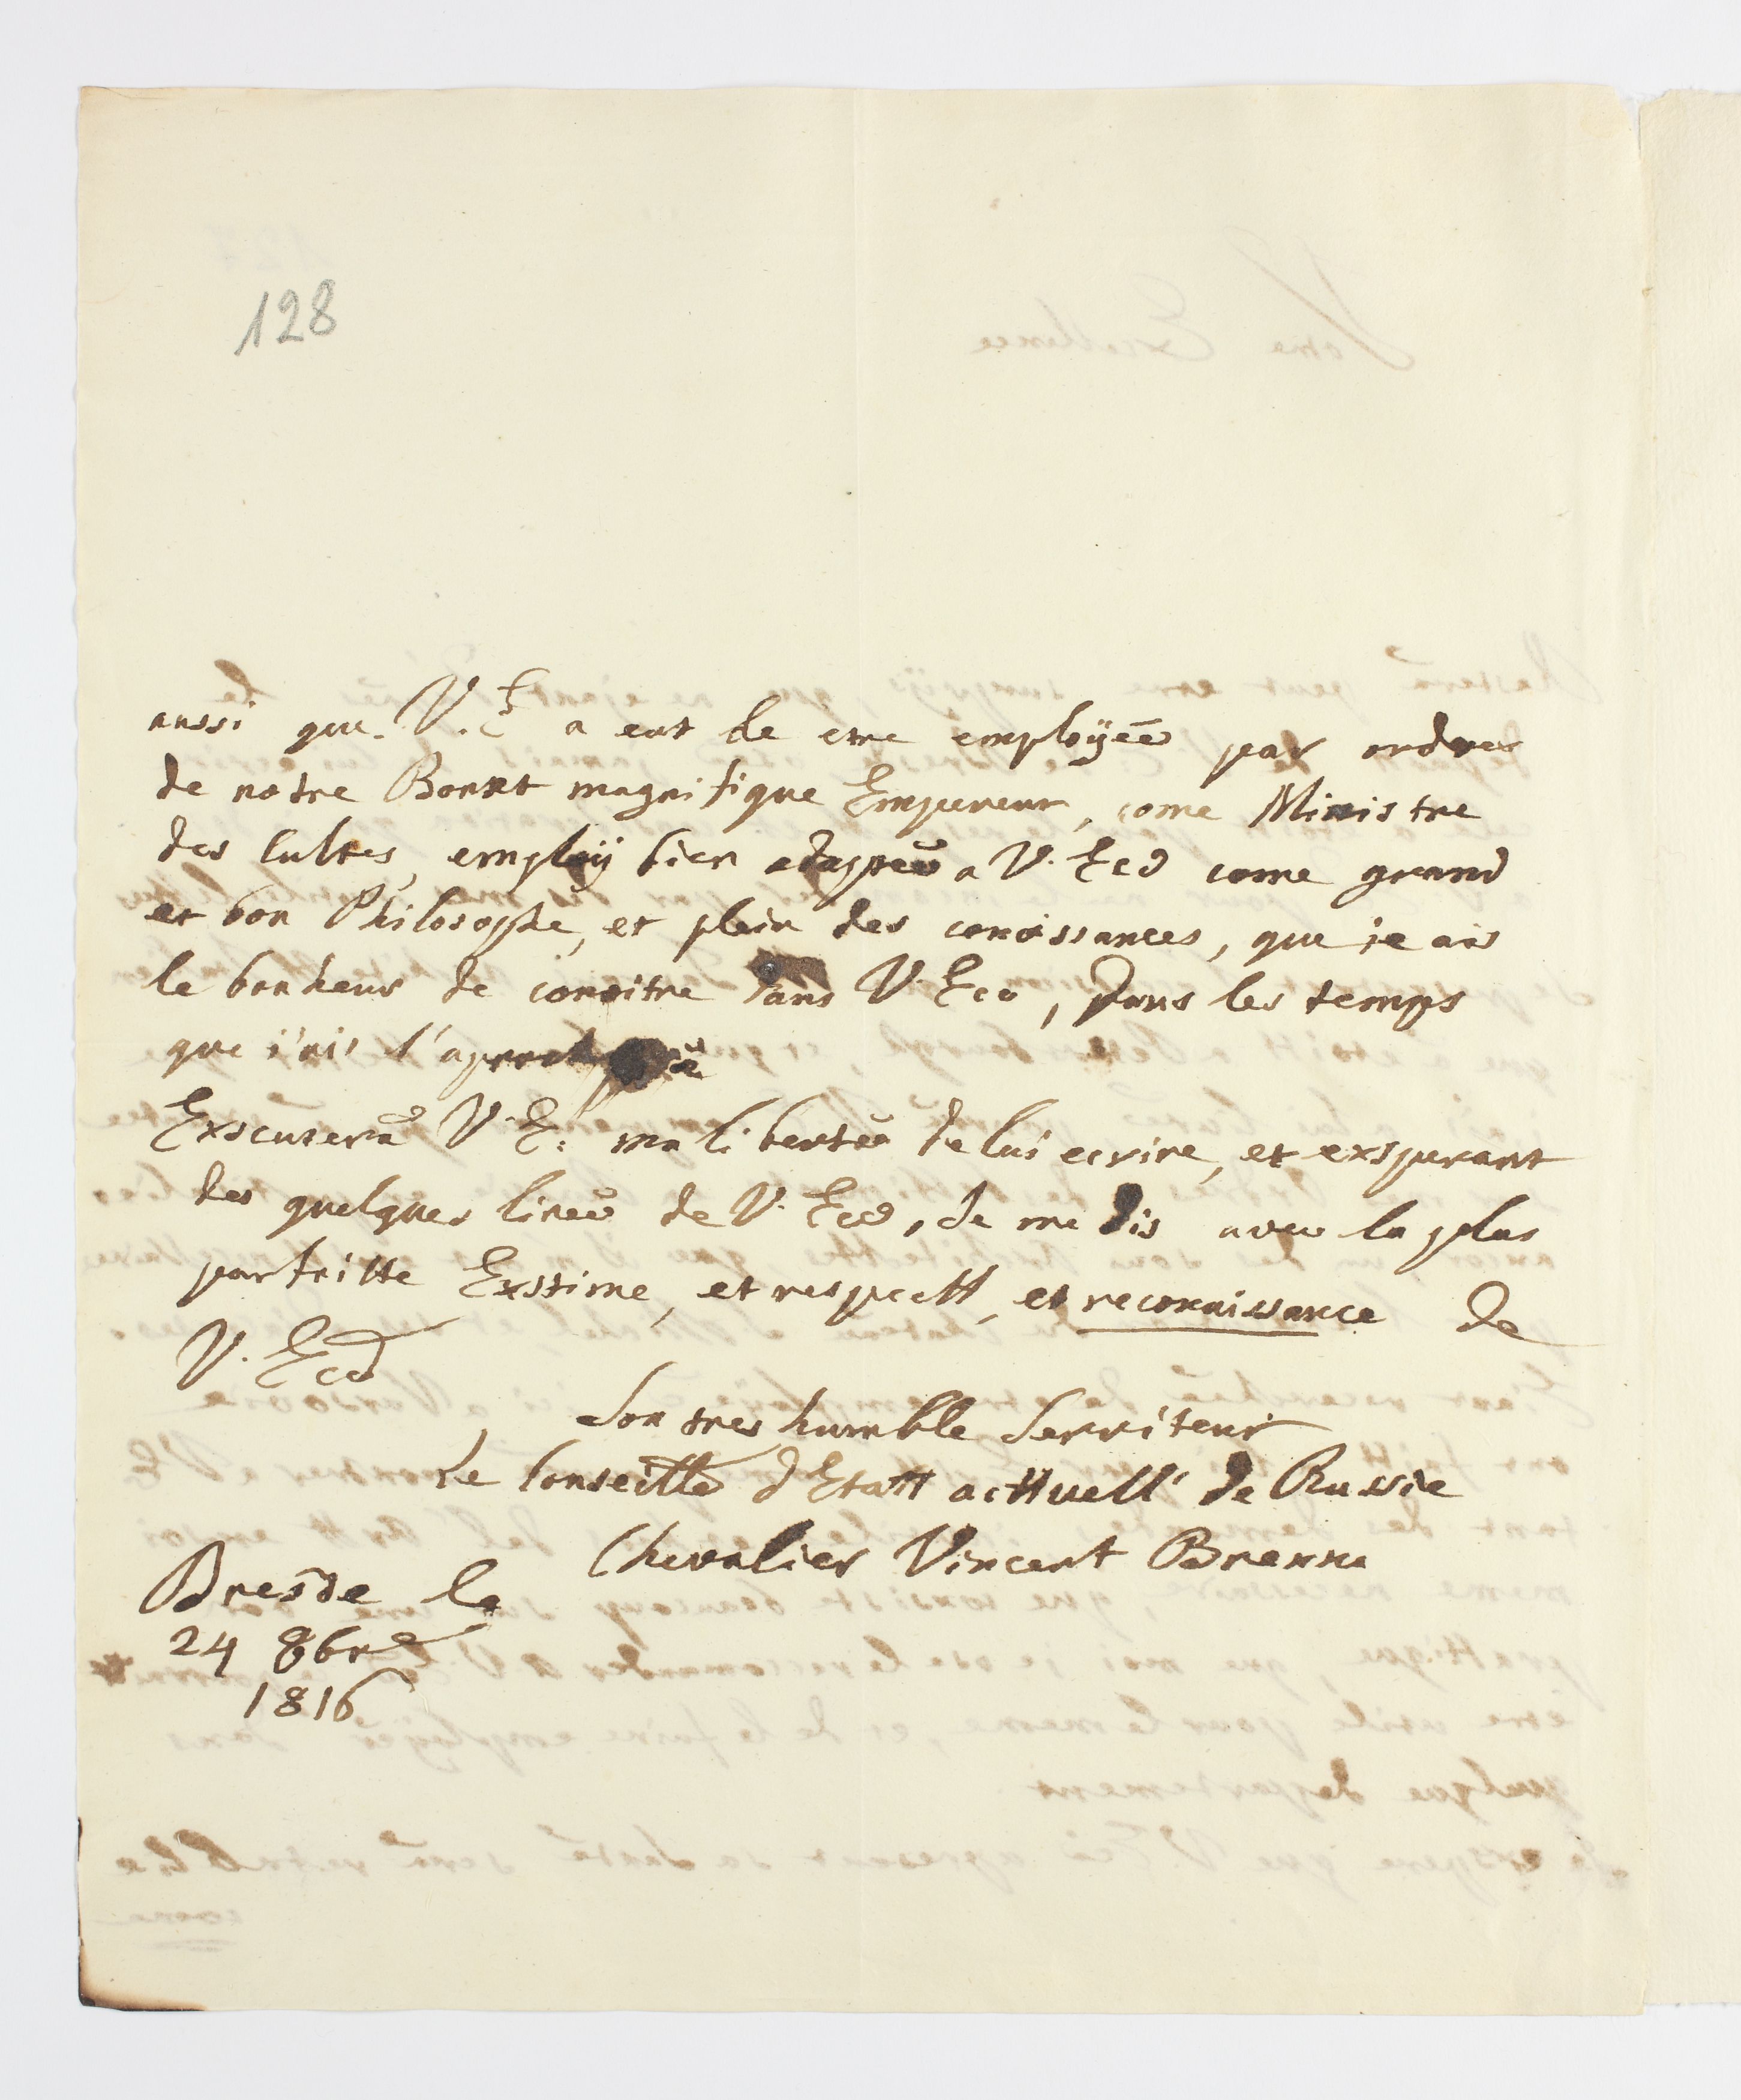 128
aussi que V. E a eut de etre employëe par ordres
de notre Bonnt magnifique Empereur, come Ministre
des Cultes, employ bien adapteé a V. Ecc come grand
et bon Philosophe, et plein des conoissances, que je ais
le bonheur de conoitre dans V. Ecc, Dans les temps
que j'ais l'aproch
Exscuserà V. E: ma libertée de lui ecrire, et exsperant
des quelques lineé de V. Ecc, Je me dis avec la plus
parfaitte Exstime, et respectt, et reconnaissance de
V. Ecc
Son tres humble Serviteur
Le Conseille d'Etatt acttuell' de Russie
Chevalier Vincent Brenna
Dresde le
24 8bre
1816